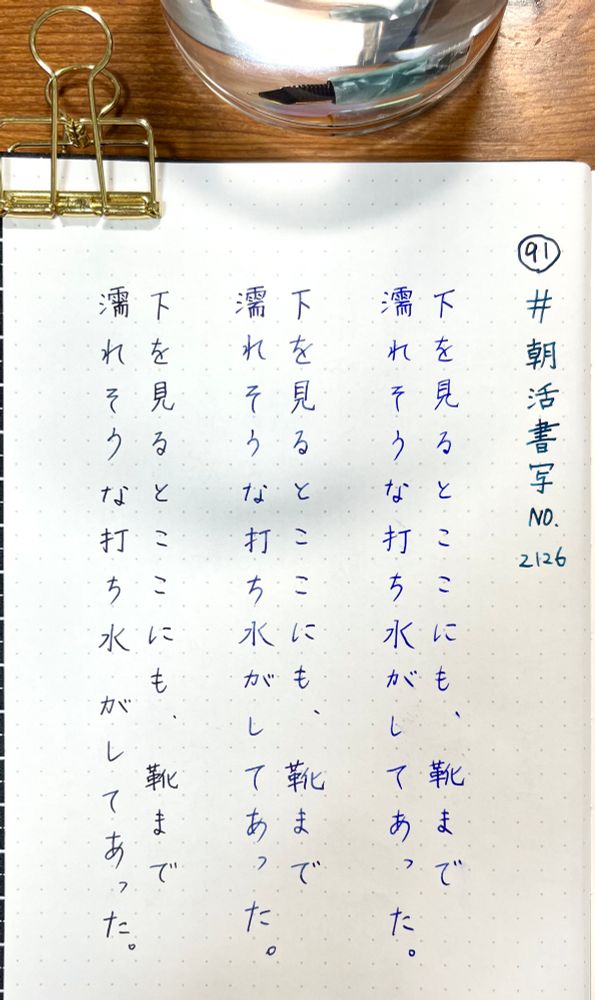 91
#朝活書写 NO. 2126
下を見るとここにも、靴まで
濡れそうな打ち水がしてあった。
下を見るとここにも、靴まで
濡れそうな打ち水がしてあった。
下を見るとここにも、靴まで
濡れそうな打ち水がしてあった。